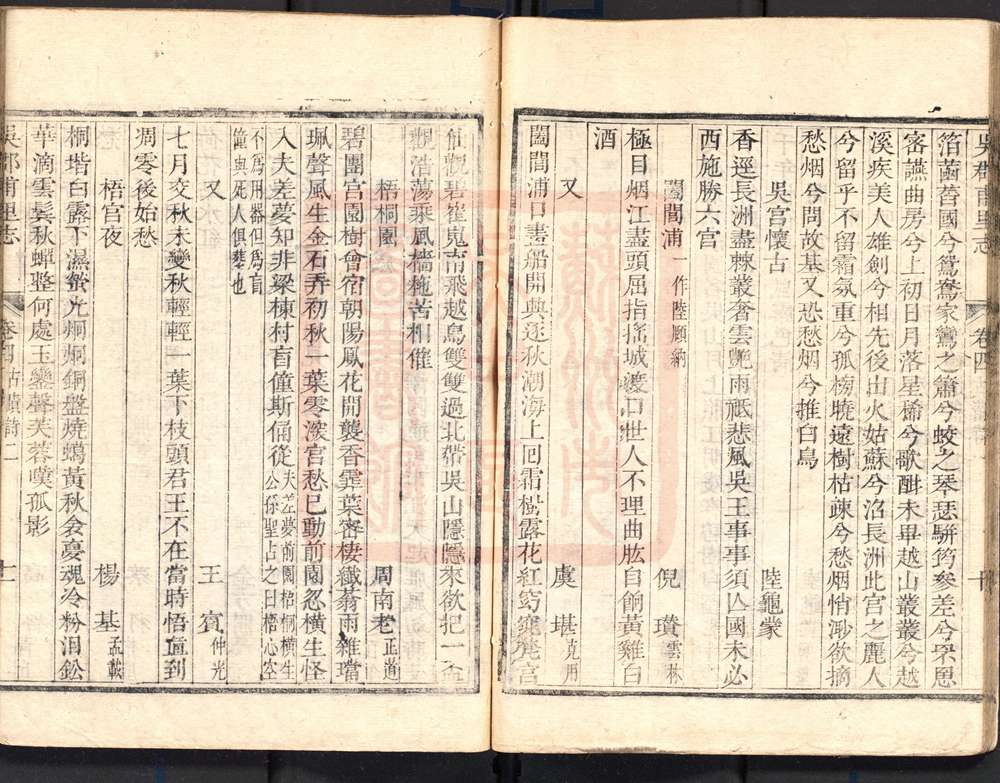 吳郡甫里志
卷四
十
箔菌蓞國兮鴛鴦家鸞之簫兮蛟之琴瑟駢筠參差兮界思
密讌曲房兮上初日月落星稀兮歌酣未畢越山叢叢兮越
溪疾美人雄劍兮相先後出火姑蘇兮沼長洲此宮之麗人
兮留乎不留霜氛重兮孤榜曉遠樹枯疎兮愁烟悄渺欲摘
愁烟兮問故基又恐愁烟兮推白鳥
吳宮懷古 陸龜蒙
香逕長洲盡棘叢奢雲艷雨祇悲風吳王事事須亾國未必
西施勝六宮
闔閭浦一作陸顧納 倪瓚雲林
極目烟江盡頭屈指搖城渡口世人不理曲肱自餉黃雞白
酒
又 虞堪克用
闔閭浦口畫船開典逐秋潮海上囘霜樹露花紅窈窕梵宮
仙觀碧崔嵬南飛越鳥雙雙過北帶吳山隱隱來欲把一盃
觀浩蕩乘風檣柂苦相催
梧桐園 周南老正道
碧團宮園樹會宿朝陽鳳花開襲香霏葉密棲纖蓊雨雜璫
珮聲風生金石弄初秋一葉零深宮愁已動前園忍橫生怪
入夫差夢知非梁棟村盲僮斯俑從夫差夢前園梧桐橫生公孫聖占之曰梧心空
不為用器但為盲僮與死人俱葬也
又 王賓仲光
七月交秋未變秋輕輕一葉下枝頭君王不在當時悟直到
凋零後始愁
梧宮夜 楊基孟載
桐堦白露下濕螢光炯炯銅盤燒蠋黃秋衾憂魂冷粉泪鈆
華滴雲鬟秋蟬整何處玉鑾聲芙蓉嘆孤影
吳郡甫里志
卷四古蹟詩二
十一